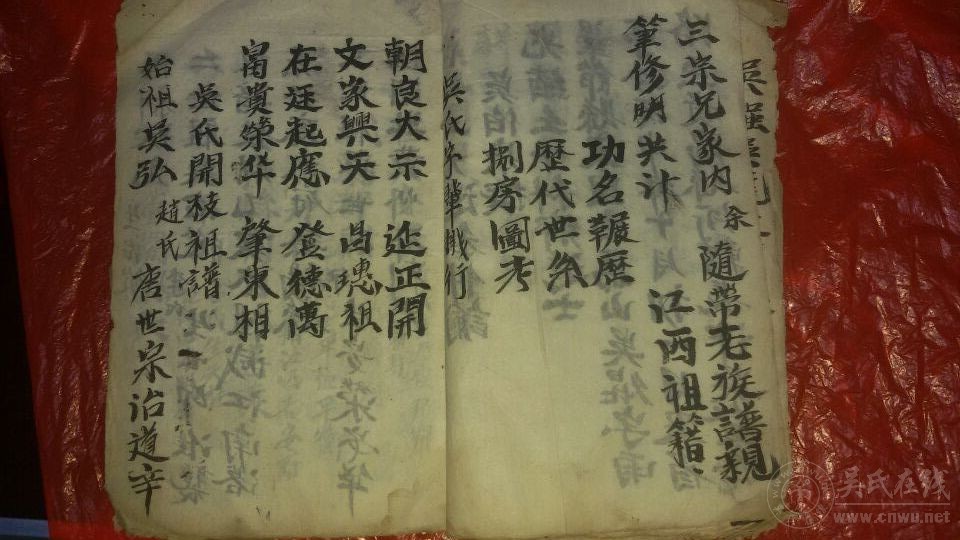 三宗兄家内余随带老族譜親
筆修明共汴 江西祖籍
功名輾歷
歷代世系
捌房圖考
吳氏字輩排行
朝良大示 正開
文家興天 昌璁祖
在廷起應 登德萬
富貴榮华 肇東相
吳氏開枝祖譜
始祖吳弘 趙氏 唐世宗治道辛
吳氏在线
www.cnwu.net